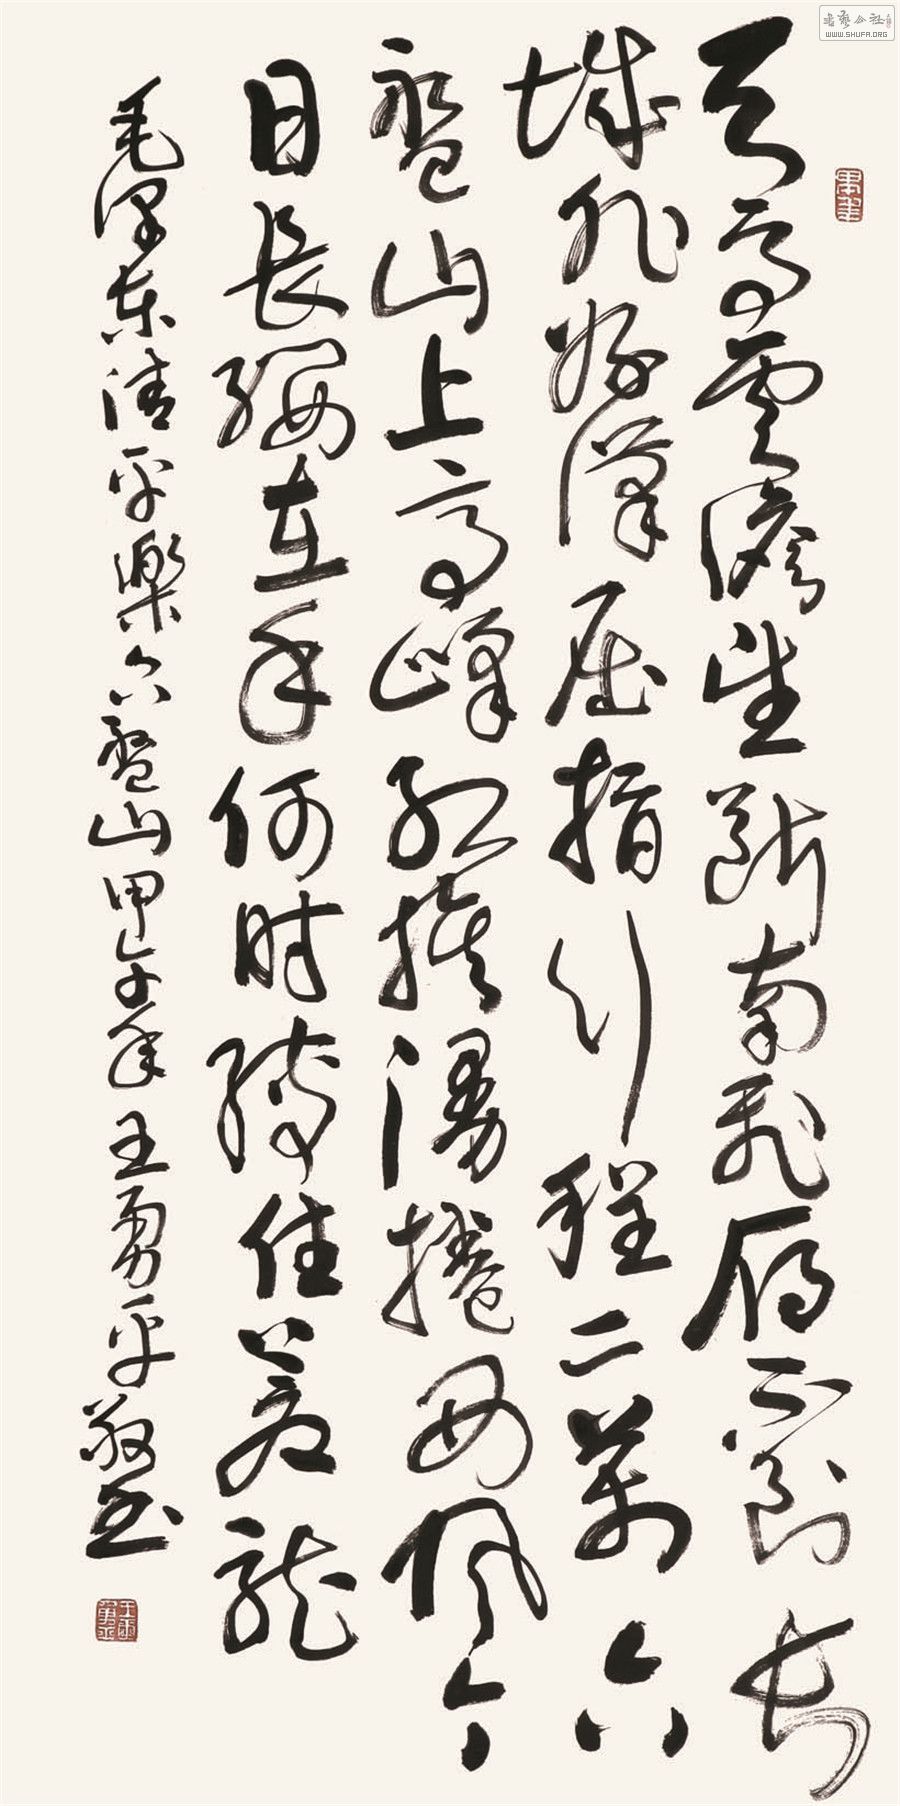 天高雲澹望斷南飛雁不到長
城非好漢屈指行程二萬六
盤山上高峰紅旗漫捲西風今
日長纓在手何时縛住蒼龍
毛澤東清平樂六盤山甲午年王勇平敬書
WWW.SHUFA.ORG